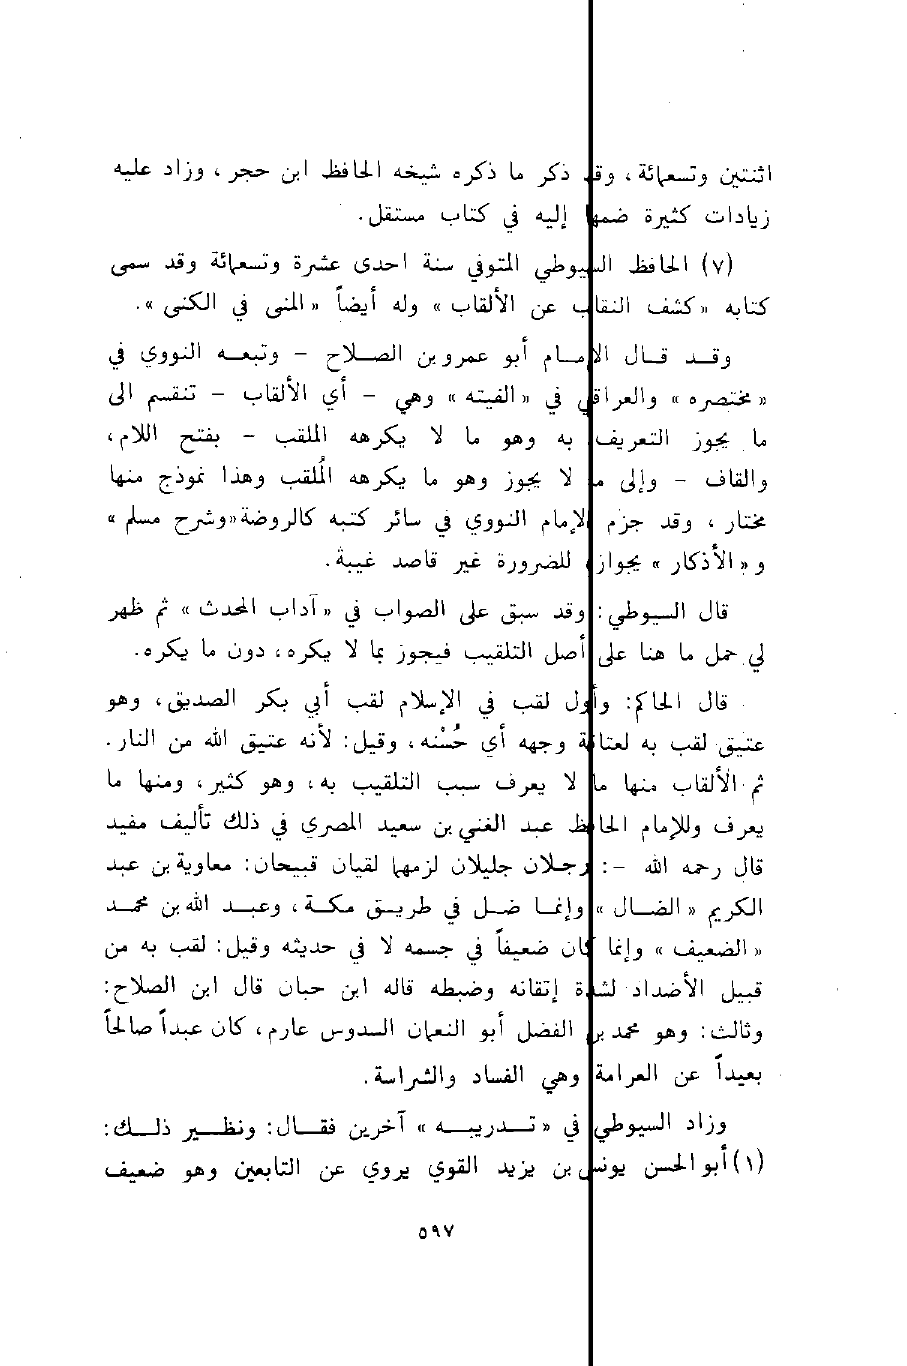 اثنتين وتسعمائة ، وقد ذكر ما ذكره شيخه الحافظ ابن حجر ، وزاد عليه
زيادات كثيرة ضمها إليه في كتاب مستقل .
(٧) الحافظ السيوطي المتوفي سنة احدى عشرة وتسعمائة وقد سمى
كتابه « كشف النقاب عن الألقاب » وله أيضاً « المنى في الكنى » .
وقد قال الإمام أبو عمرو بن الصلاح – وتبعه النووي في
« مختصره » والعراقي في « الفيته » وهي – أي الألقاب – تنقسم الى
ما يجوز التعريف به وهو ما لا يكرهه الملقب – بفتح اللام ،
والقاف – وإلى ما لا يجوز وهو ما يكرهه المُلقب وهذا نموذج منها
مختار ، وقد جزم الإمام النووي في سائر كتبه كالروضة «وشرح مسلم »
و « الأذكار » بجوازه للضرورة غير قاصد غيبة .
قال السيوطي : وقد سبق على الصواب في « آداب المحدث » ثم ظهر
لي حمل ما هنا على أصل التلقيب فيجوز بما لا يكره ، دون ما يكره .
قال الحاكم : وأول لقب في الإسلام لقب أبي بكر الصديق ، وهو
عتيق لقب به لعتاقة وجهه أي حُسْنه ، وقيل : لأنه عتيق الله من النار .
ثم الألقاب منها ما لا يعرف سبب التلقيب به ، وهو كثير ، ومنها ما
يعرف وللإمام الحافظ عبد الغني بن سعيد المصري في ذلك تأليف مفيد
قال رحمه الله – : رجلان جليلان لزمهما لقبان قبيحان : معاوية بن عبد
الكريم « الضال » وإنما ضل في طريق مكة ، وعبد الله بن محمد
« الضعيف » وإنما كان ضعيفاً في جسمه لا في حديثه وقيل : لقب به من
قبيل الأضداد لشدة إتقانه وضبطه قاله ابن حبان قال ابن الصلاح :
وثالث : وهو محمد بن الفضل أبو النعمان السدوسي عارم ، كان عبداً صالحاً
بعيداً عن العرامة وهي الفساد والشراسة .
وزاد السيوطي في « تدريبه » آخرين فقال : ونظير ذلك :
(١) أبو الحسن يونس بن يزيد القوي يروي عن التابعين وهو ضعيف
٥٩٧